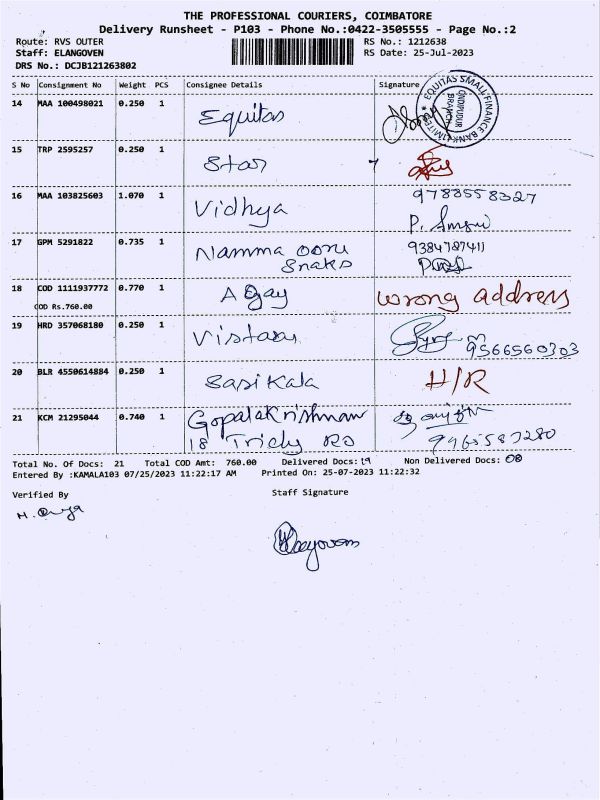 THE PROFESSIONAL COURIERS, COIMBATORE
Delivery Runsheet - P103 - Phone No.:0422-3505555 - Page No.:2
Route: RVS OUTER RS No.: 1212638
Staff: ELANGOVEN RS Date: 25-Jul-2023
DRS No.: DCJB121263802
S No Consignment No Weight PCS Consignee Details Signature
EQUITAS SMALL FINANCE BANK LIMITED
BRANCH
14 MAA 100498021 0.250 1 Equitas
15 TRP 2595257 0.250 1 Star
16 MAA 103825603 1.070 1 Vidhya 9788558327
17 GPM 5291822 0.735 1 Namma ooru 9384787411
Snaks
18 COD 1111937772 0.770 1 Agay wrong address
COD Rs.760.00
19 HRD 357068180 0.250 1 Vistaas 9566560303
20 BLR 4550614884 0.250 1 Sasi Kala H/R
21 KCM 21295044 0.740 1 Gopalakrishnan
18 Trichy Rd
Total No. Of Docs: 21 Total COD Amt: 760.00 Delivered Docs: 19 Non Delivered Docs: 08
Entered By :KAMALA103 07/25/2023 11:22:17 AM Printed On: 25-07-2023 11:22:32
Verified By Staff Signature